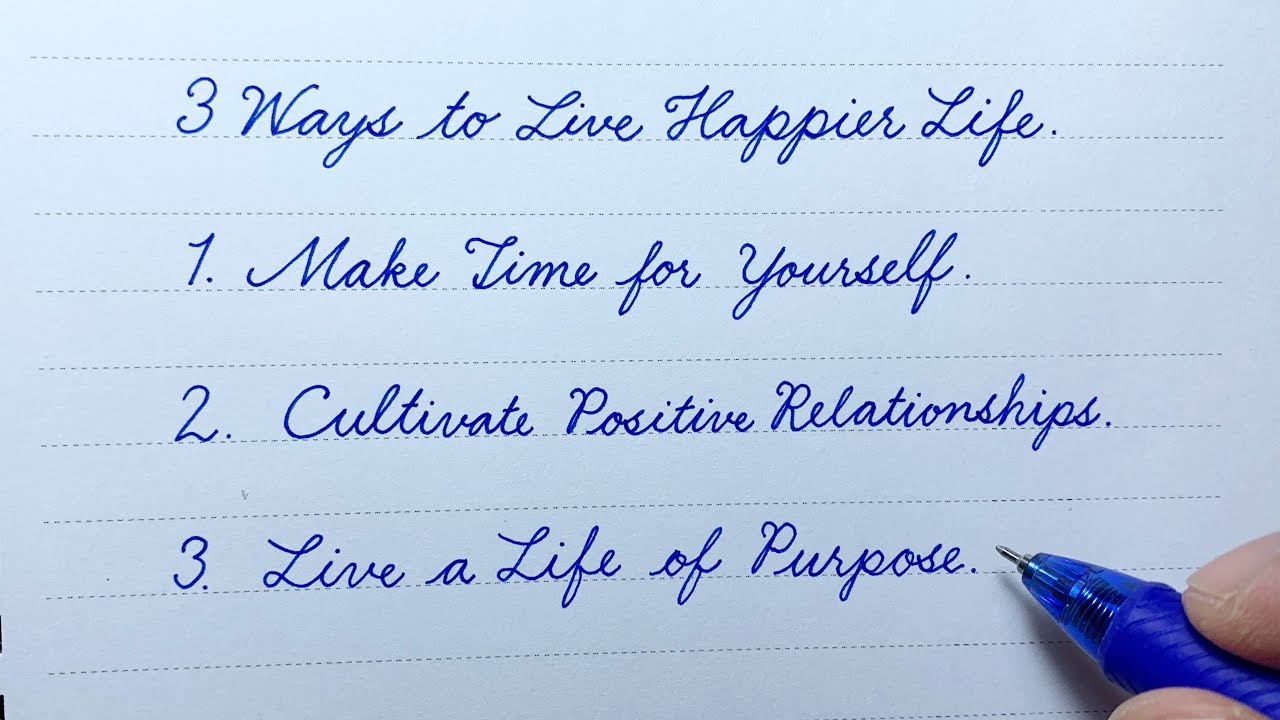 3 Ways to Live Happier Life.
1. Make Time for Yourself.
2. Cultivate Positive Relationships.
3. Live a Life of Purpose.